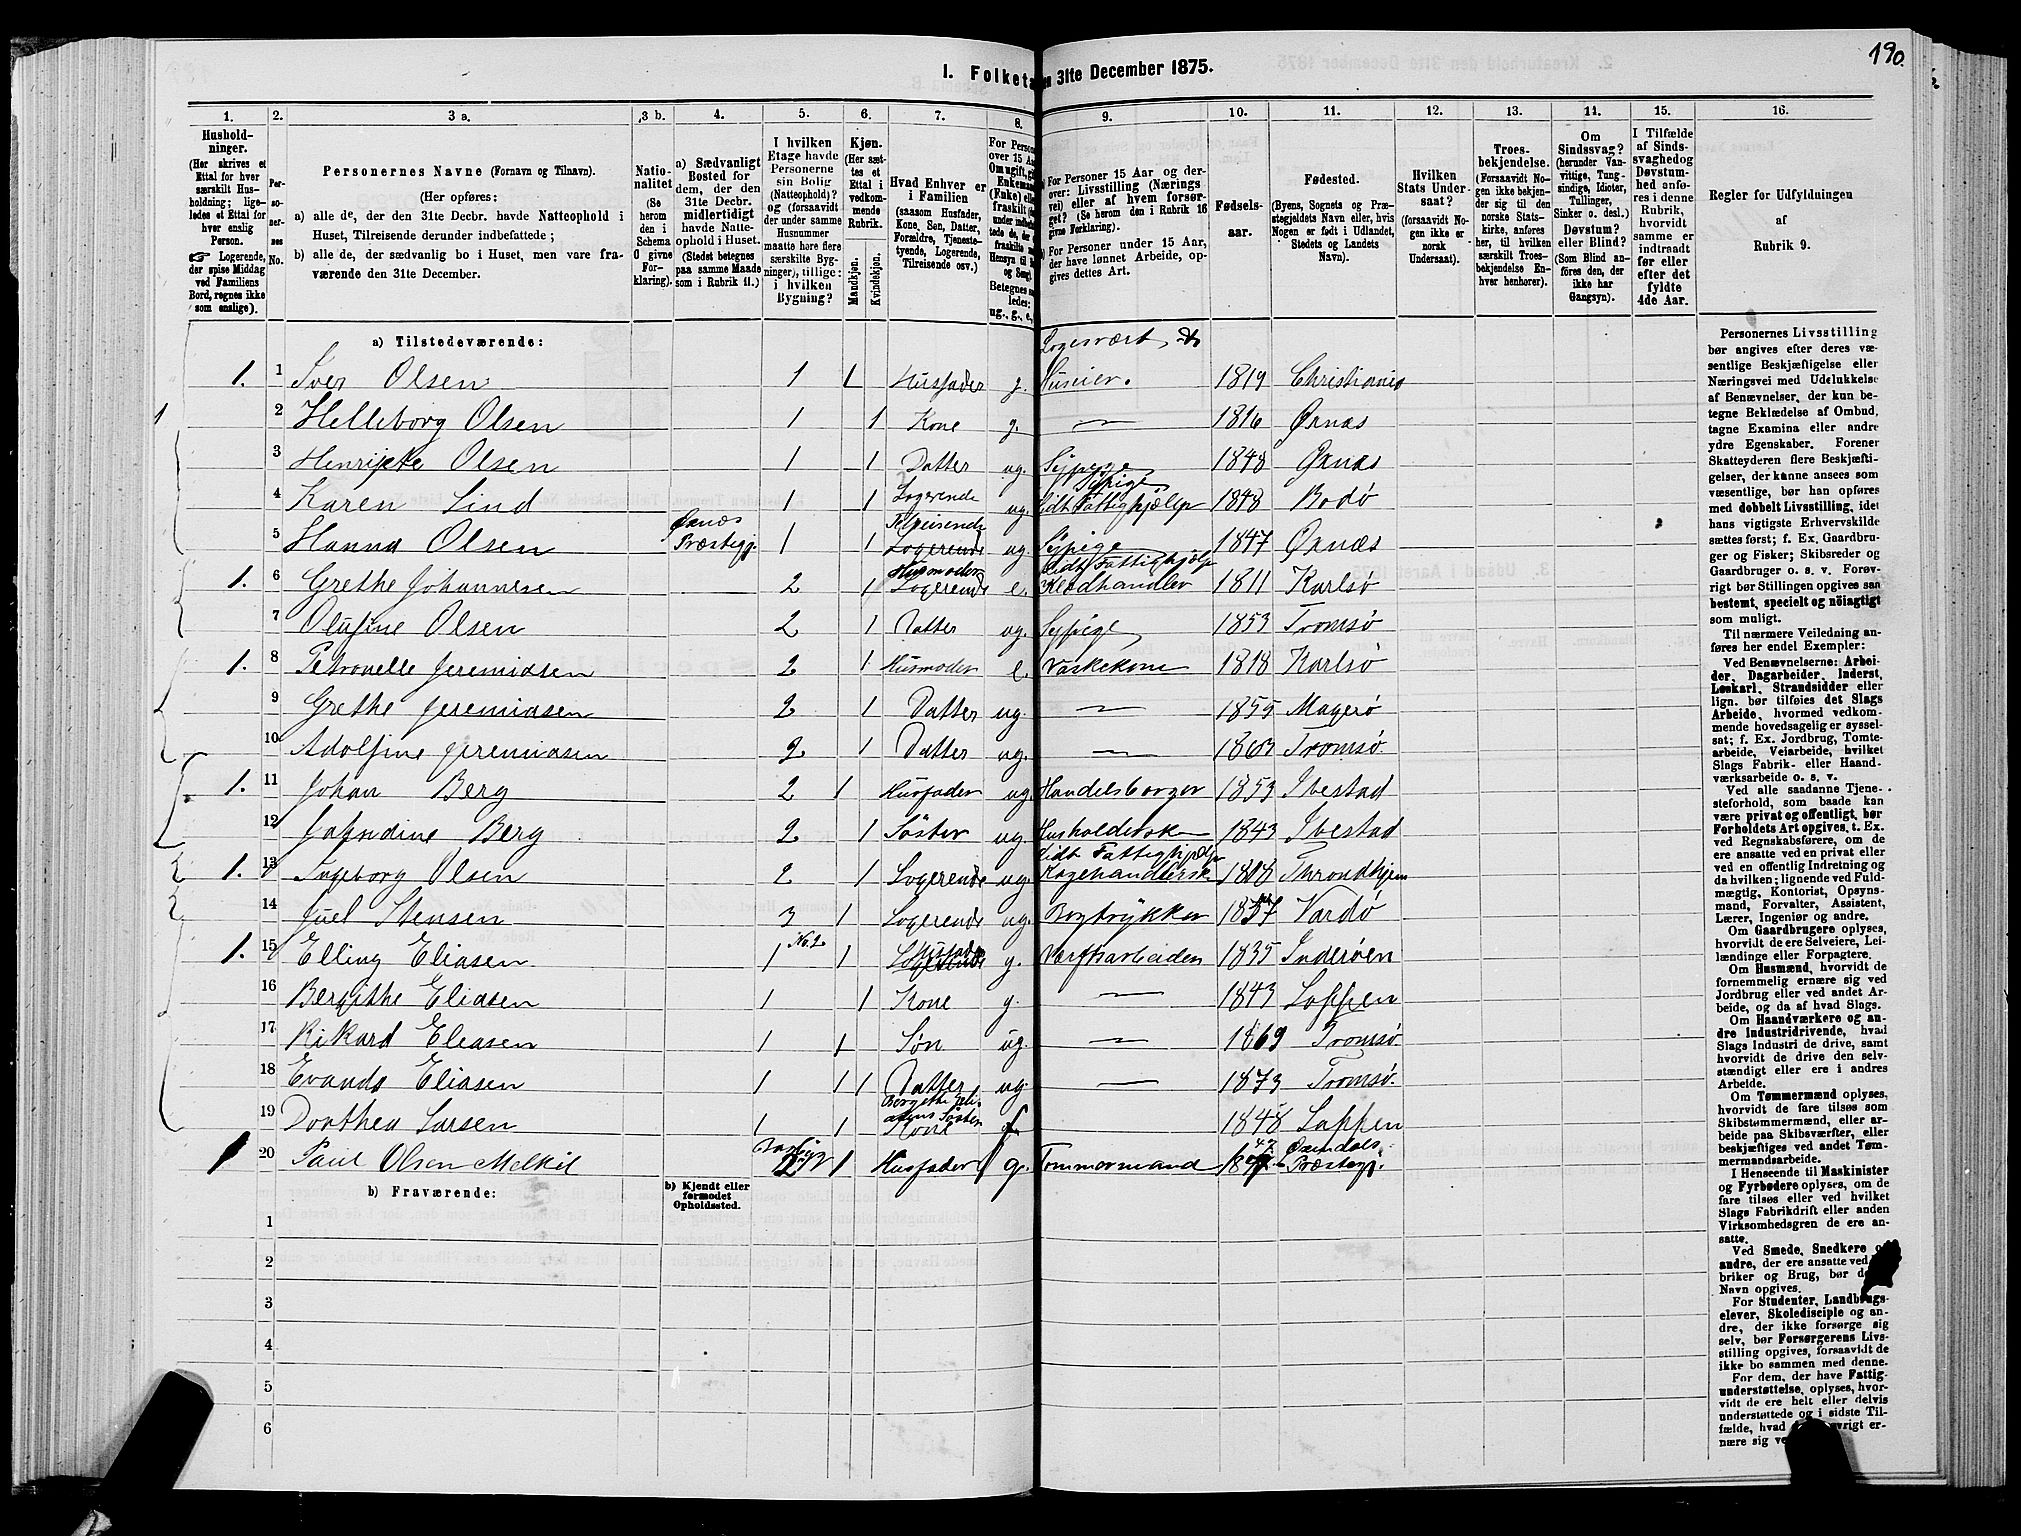 190.
I. Folketa en 31te December 1875.
1. 2. 3 a. 3 b. 4. 5. 6. 7. 8. 9. 10. 11. 12. 13. 14. 15. 16.
Hushold-
ninger.
(Her skrives et
Ettal for hver
særskilt Hus-
holdning; lige-
ledes et Ettal for
hver enslig
Person.
☞ Logerende,
der spise Middag
ved Familiens
Bord, regnes ikke
som enslige).
Per-
so-
ner-
nes
No.
Personernes Navne (Fornavn og Tilnavn).
(Her opføres:
a) alle de, der den 31te Decbr. havde Natteophold i
Huset, Tilreisende derunder indbefattede;
b) alle de, der sædvanlig bo i Huset, men vare fra-
værende den 31te December.
Natio-
nalitet
(Se
herom
den i
Schema
O givne
For-
klaring).
a) Sædvanligt
Bosted for
dem, der den
31te Decbr.
midlertidigt
havde Natte-
ophold i Huset.
(Stedet betegnes
paa samme Maade
som i Rubrik 11.)
I hvilken
Etage havde
Personerne
sin Bolig
(Natteophold)?
og (forsaavidt
der under samme
Husnummer
maatte høre flere
særskilte Byg-
ninger), tillige:
i hvilken
Bygning?
Kjøn.
(Her sæt-
tes et
Ettal i
vedkom-
mende
Rubrik.
Mandkjøn.
Kvindekjøn.
Hvad Enhver er
i Familien
(saasom Husfader,
Kone, Søn, Datter,
Forældre, Tjeneste-
tyende, Logerende,
Tilreisende osv.)
For Persone
over 15 Aa
Om ugift, gi
Enkeman
(Enke) elle
fraskilt
Betegnes sa
ledes:
ug., g., e.,
For Personer 15 Aar og der-
over: Livsstilling (Nærings
vei) eller af hvem forsør-
get? (Se herom den i Rubrik 16
givne Forklaring).
For Personer under 15 Aar,
der have lønnet Arbeide, op-
gives dettes Art.
Fødsels-
aar.
Fødested.
(Byens, Sognets og Præ-
stegjeldets Navn eller, hvis
Nogen er født i Udlandet,
Stedets og Landets
Navn).
Hvilken
Stats Under-
saat?
(forsaavidt No-
gen ikke er
norsk
Undersaat).
Troes-
bekjendelse.
(Forsaavidt No-
gen ikke bekjen-
der sig til den
norske Stats-
kirke, anføres
her, til hvilken
særskilt Troes-
bekjendelse En-
hver henhører).
Om
Sindssvag?
(herunder Van-
vittige, Tung-
sindige, Idioter,
Tullinger,
Sinker o. desl.)
Døvstum?
eller Blind?
(Som Blind an-
føres den, der
ikke har
Gangsyn).
I Tilfælde
af Sinds-
svaghedog
Døvstum-
hed anfø-
res i denne
Rubrik,
hvorvidt
samme er
indtraadt
før eller
efter det
fyldte
4de Aar.
Regler for Udfyldningen
af
Rubrik 9.
a) Tilstedeværende:
Logesvært &
1. 1 Iver Olsen 1 1 Husfader g. Huseier. 1819 Christiania
2 Helleborg Olsen 1 1 Kone g. — 1816 Øxnæs
3 Henrijette Olsen 1 1 Datter ug. Sypige 1848 Øxnæs
Sypige
4 Karen Lind 1 1 Logerende ug. Lidt Fattighjælp 1848 Bodø
Øxnæs Tilreisende
5 Hanna Olsen Præstegj. 1 1 Logerende ug. Sypige 1847 Øxnæs
Husmoder Lidt Fattighjælp
1. 6 Grethe Johannesen 2 1 Logerende e. Kladhandler 1811 Karlsø
7 Olufine Olsen 2 1 Datter ug. Sypige 1853 Tromsø
1. 8 Petronelle Jeremiasen 2 1 Husmoder e. Vaskekone 1818 Karlsø
9 Grethe Jeremiasen 2 1 Datter ug. — 1855 Magerø
10 Adolfine Jeremiasen 2 1 Datter ug. — 1863 Tromsø
1. 11 Johan Berg 2 1 Husfader ug. Handelsborger 1853 Ibestad
12 Berg 2 1 Søster ug. Husholderske 1843 Ibestad
Lidt Fattighjælp
1. 13 Ingeborg Olsen 2 1 Logerende ug. Kagehandlersk. 1808 Throndhjem
14 Juel Stensen 3 1 Logerende ug. Bogtrykker 1857 Vardø
No. 2 Husfader
1. 15 Elling Eliasen 1 1 Logerende g. Værftsarbeider 1835 Inderøen
16 Bergithe Eliasen 1 1 Kone g. — 1843 Loppen
17 Rikard Eliasen 1 1 Søn ug. — 1869 Tromsø
18 Evanda Eliasen 1 1 1 Datter ug. — 1873 Tromsø.
Bergithe Eli-
asens Søster
19 Dorthea Larsen 1 1 Kone 1848 Loppen
1 20 Paul Olsen Melkil 2 1 Husfader g. Tommermand Præstegj.
b) Fraværende:
b) Kjendt eller
formodet
Opholdssted.
1
2
3
4
5
6
Personernes Livsstilling
bør angives efter deres væ-
sentlige Beskjæftigelse eller
Næringsvei med Udelukkelse
af Benævnelser, der kun be-
tegne Beklædelse af Ombud,
tagne Examina eller andre
ydre Egenskaber. Forener
Skatteyderen flere Beskjæfti-
gelser, der kunne ansees som
væsentlige, bør han opføres
med dobbelt Livsstilling, idet
hans vigtigste Erhvervskilde
sættes først; f. Ex. Gaardbru-
ger og Fisker; Skibsreder og
Gaardbruger o. s. v. Forøv-
rigt bør Stillingen opgives saa
bestemt, specielt og nöiagtigt
som muligt.
Til nærmere Veiledning an-
føres her endel Exempler:
Ved Benævnelserne: Arbei-
der, Dagarbeider, Inderst,
Løskarl, Strandsidder eller
lign. bør tilføies det Slags
Arbeide, hvormed vedkom-
mende hovedsagelig er syssel-
sat; f. Ex. Jordbrug, Tomte-
arbeide, Veiarbeide, hvilket
Slags Fabrik- eller Haand-
værksarbeide o. s. v.
Ved alle saadanne Tjene-
steforhold, som baade kan
være privat og offentligt, bør
Forholdets Art opgives, t. Ex.
ved Regnskabsførere, om de
ere ansatte ved en privat eller
ved en offentlig Indretning og
da hvilken; lignende ved Fuld-
mægtig, Kontorist, Opsyns-
mand, Forvalter, Assistent,
Lærer, Ingeniør og andre.
Om Gaardbrugere oplyses,
hvorvidt de ere Selveiere, Lei-
lændinge eller Forpagtere.
Om Husmænd, hvorvidt de
fornemmelig ernære sig ved
Jordbrug eller ved andet Ar-
beide, og da af hvad Slags.
Om Haandværkere og an-
dre Industridrivende, hvad
Slags Industri de drive, samt
hvorvidt de drive den selv-
stændigt eller ere i andres
Arbeide.
Om Tømmermænd oplyses,
hvorvidt de fare tilsøs som
Skibstømmermænd, eller ar-
beide paa Skibsværfter, eller
beskjæftiges ved andet Tøm-
mermandsarbeide.
I Henseende til Maskinister
og Fyrbødere oplyses, om de
fare tilsøs eller ved hvilket
Slags Fabrikdrift eller anden
Virksomhedsgren de ere an-
satte.
Ved Smede, Snedkere o
andre, der ere ansatte ved
briker og Brug, bør d
Navn opgives.
For Studenter, Landbrugs-
elever, Skoledisciple og an-
dre, der ikke forsørge sig
selv, bør Forsørgerens Livs-
stilling opgives, forsaavidt de
ikke bo sammen med denne.
For dem, der have Fattig-
understøttelse, oplyses, hvor-
vidt de ere helt eller delvis
understøttede og i sidste Til-
fælde, hvad vrigt er-
nære sig ve